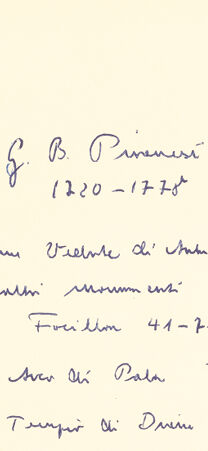 G. B. Piranesi
1720-1778
Vedute di
altri monumenti
Focillon 41-7
Arco di Pola
Tempio di